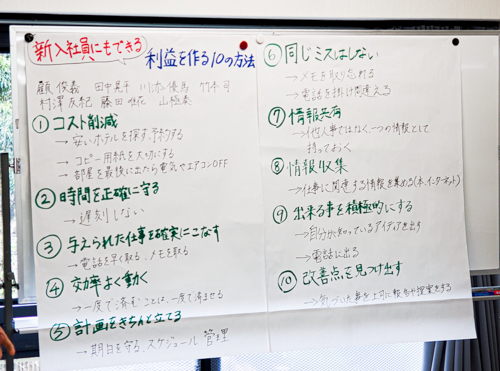 新入社員にもできる
利益を作る10の方法
顧 俊義 田中 晃平 川添 優馬 竹本 司
村澤 友紀 藤田 山極
① コスト削減
→安いホテルを探す、予約する
→コピー用紙を大切にする
→部屋を最後に出たら電気やエアコンOFF
② 時間を正確に守る
→遅刻しない
③ 与えられた仕事を確実にこなす
→電話を早く取る、メモを取る
④ 効率よく働く
→一度で済むことは、一度で済ませる
⑤ 計画をきちんと立てる
→期日を守る、スケジュール管理
⑥ 同じミスはしない
→メモを取り忘れる
→電話を掛け間違える
⑦ 情報共有
→他人事ではなく、一つの情報として
持っておく
⑧ 情報収集
→仕事に関連する情報を集める(本、インターネット)
⑨ 出来る事を積極的にする
→自分が知っているアイディアを出す
→電話に出る
⑩ 改善点を見つけ出す
→気づいた事を上司に報告や提案をする